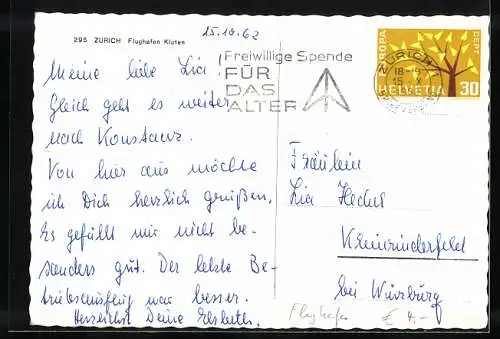 295 ZÜRICH Flughafen Kloten
15.10.62
Meine liebe Lia!
Gleich geht es weiter
nach Konstanz.
Von hier aus möchte
ich Dich herzlich grüßen.
Es gefällt mir nicht be-
sonders gut. Der letzte Be-
triebsausflug war besser.
Herzlichst Deine Elsbeth.
Freiwillige Spende
FÜR
DAS
ALTER
ZÜRICH
18-19
15. X.
EUROPA
CEPT
HELVETIA 30
Fräulein
Lia
Kleinrinderfeld
bei Würzburg
Flughafen
€ 4.-